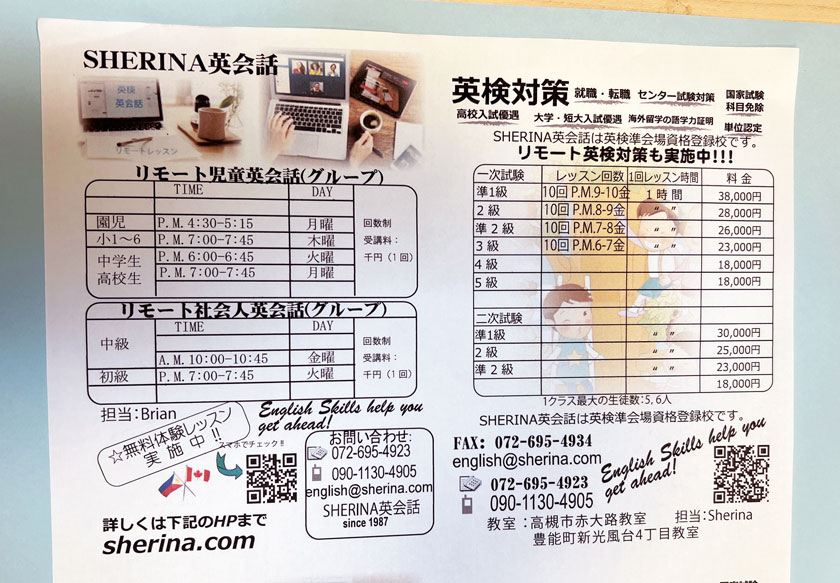 SHERINA英会話
英検
英会話
リモートレッスン
リモート児童英会話(グループ)
TIME DAY
園児 P.M.4:30-5:15 月曜
小1～6 P.M.7:00-7:45 木曜
中学生 P.M.6:00-6:45 火曜
高校生 P.M.7:00-7:45 月曜
回数制
受講料：
千円（1回）
リモート社会人英会話(グループ)
TIME DAY
中級
A.M.10:00-10:45 金曜
初級 P.M.7:00-7:45 火曜
回数制
受講料：
千円（1回）
担当：Brian
English Skills help you
get ahead!
☆無料体験レッスン
実施中!!
スマホでチェック!!
お問い合わせ:
072-695-4923
090-1130-4905
english@sherina.com
SHERINA英会話
since 1987
詳しくは下記のHPまで
sherina.com
英検対策 就職・転職 センター試験対策 国家試験
科目免除
高校入試優遇 大学・短大入試優遇 海外留学の語学力証明 単位認定
SHERINA英会話は英検準会場資格登録校です。
リモート英検対策も実施中!!!
一次試験 レッスン回数 1回レッスン時間 料金
準1級 10回 P.M.9-10金 1時間 38,000円
2級 10回 P.M.8-9金 〃 28,000円
準2級 10回 P.M.7-8金 〃 26,000円
3級 10回 P.M.6-7金 〃 23,000円
4級 18,000円
5級 18,000円
二次試験
準1級 〃 30,000円
2級 〃 25,000円
準2級 〃 23,000円
18,000円
1クラス最大の生徒数：5,6人
SHERINA英会話は英検準会場資格登録校です。
FAX: 072-695-4934
english@sherina.com
072-695-4923
090-1130-4905
English Skills help you
get ahead!
教室：高槻市赤大路教室 担当：Sherina
豊能町新光風台4丁目教室